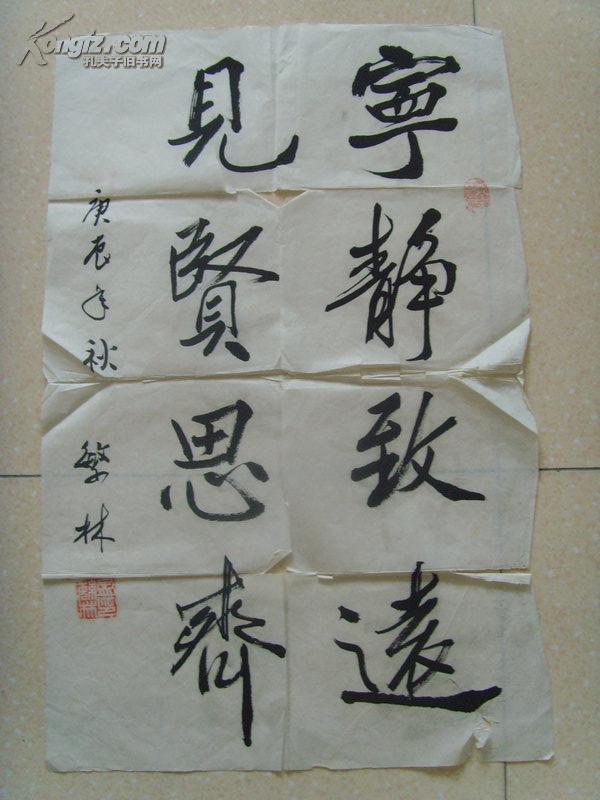 寧靜致遠
見賢思齊
庚辰年秋
繁林
Kongfz.com
孔夫子旧书网